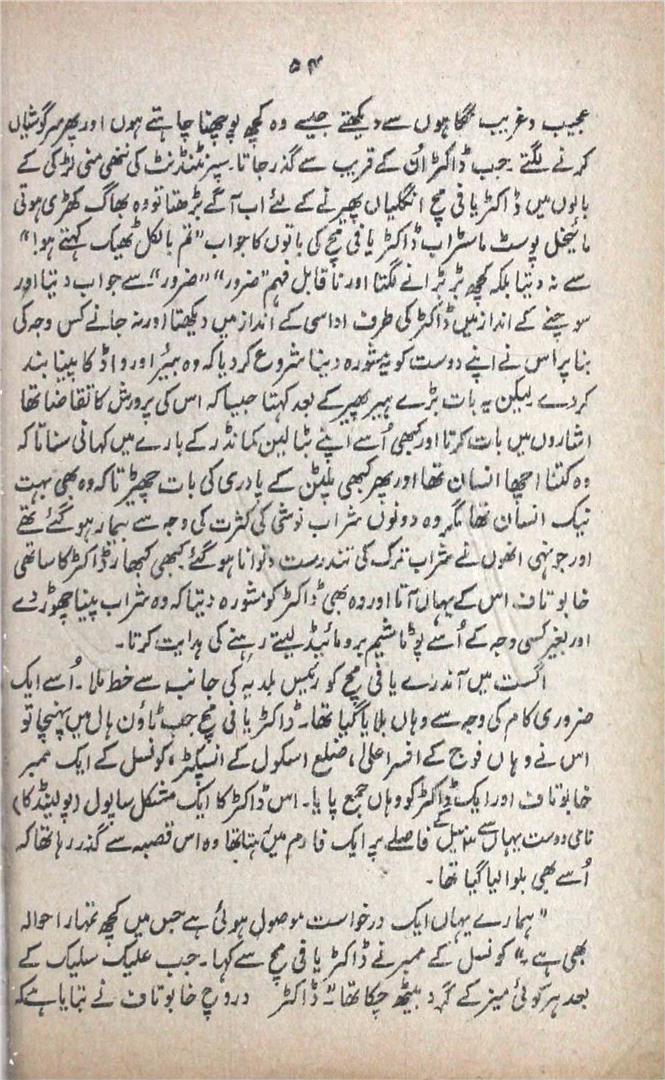 ۵۴
عجیب و غریب نگاہوں سے دیکھتے جیسے وہ کچھ پوچھنا چاہتے ہوں اور پھر سرگوشیاں
کرنے لگتے۔ جب ڈاکٹر اُن کے قریب سے گذر جاتا۔ سپرنٹنڈنٹ کی ننھی منی لڑکی کے
بالوں میں ڈاکٹر یافی مچ انگلیاں پھیرنے کے لئے اب آگے بڑھتا تو وہ بھاگ کھڑی ہوتی
مائیخل پوسٹ ماسٹر اب ڈاکٹر یافی مچ کی باتوں کا جواب "تم بالکل ٹھیک کہتے ہو!"
سے نہ دیتا بلکہ کچھ بڑبڑانے لگتا اور ناقابل فہم "ضرور" "ضرور" سے جواب دیتا اور
سوچنے کے انداز میں ڈاکٹر کی طرف اداسی کے انداز میں دیکھتا اور نہ جانے کس وجہ کی
بنا پر اس نے اپنے دوست کو یہ مشورہ دینا شروع کر دیا کہ وہ بیئر اور واڈکا پینا بند
کر دے لیکن یہ بات بڑے ہیر پھیر کے بعد کہتا جیسا کہ اس کی پرورش کا تقاضا تھا
اشاروں میں بات کرتا اور کبھی اُسے اپنے بٹالین کمانڈر کے بارے میں کہانی سناتا کہ
وہ کتنا اچھا انسان تھا اور پھر کبھی پلٹن کے پادری کی بات چھیڑتا کہ وہ بھی بہت
نیک انسان تھا مگر وہ دونوں شراب نوشی کی کثرت کی وجہ سے بیمار ہو گئے تھے
اور جونہی انھوں نے شراب ترک کی تندرست و توانا ہو گئے کبھی کبھار ڈاکٹر کا ساتھی
خابوتاف اس کے یہاں آتا اور وہ بھی ڈاکٹر کو مشورہ دیتا کہ وہ شراب پینا چھوڑ دے
اور بغیر کسی وجہ کے اُسے پوٹاشیم برومائیڈ لیتے رہنے کی ہدایت کرتا۔
اگست میں آندرے یافی مچ کو رئیس بلدیہ کی جانب سے خط ملا۔ اُسے ایک
ضروری کام کی وجہ سے وہاں بلایا گیا تھا۔ ڈاکٹر یافی مچ جب ٹاؤن ہال میں پہنچا تو
اس نے وہاں فوج کے افسر اعلیٰ، ضلع اسکول کے انسپکٹر، کونسل کے ایک ممبر
خابوتاف اور ایک ڈاکٹر کو وہاں جمع پایا۔ اس ڈاکٹر کا ایک مشکل سا پول (پولینڈ کا)
نامی دوست یہاں سے ۳ میل کے فاصلے پر ایک فارم میں رہتا تھا وہ اس قصبہ سے گذر رہا تھا کہ
اُسے بھی بلوا لیا گیا تھا۔
"ہمارے یہاں ایک درخواست موصول ہوئی ہے جس میں کچھ تمہارا حوالہ
بھی ہے۔" کونسل کے ممبر نے ڈاکٹر یافی مچ سے کہا۔ جب علیک سلیک کے
بعد ہر کوئی میز کے گرد بیٹھ چکا تھا "ڈاکٹر دروچ خابوتاف نے بتایا ہے کہ